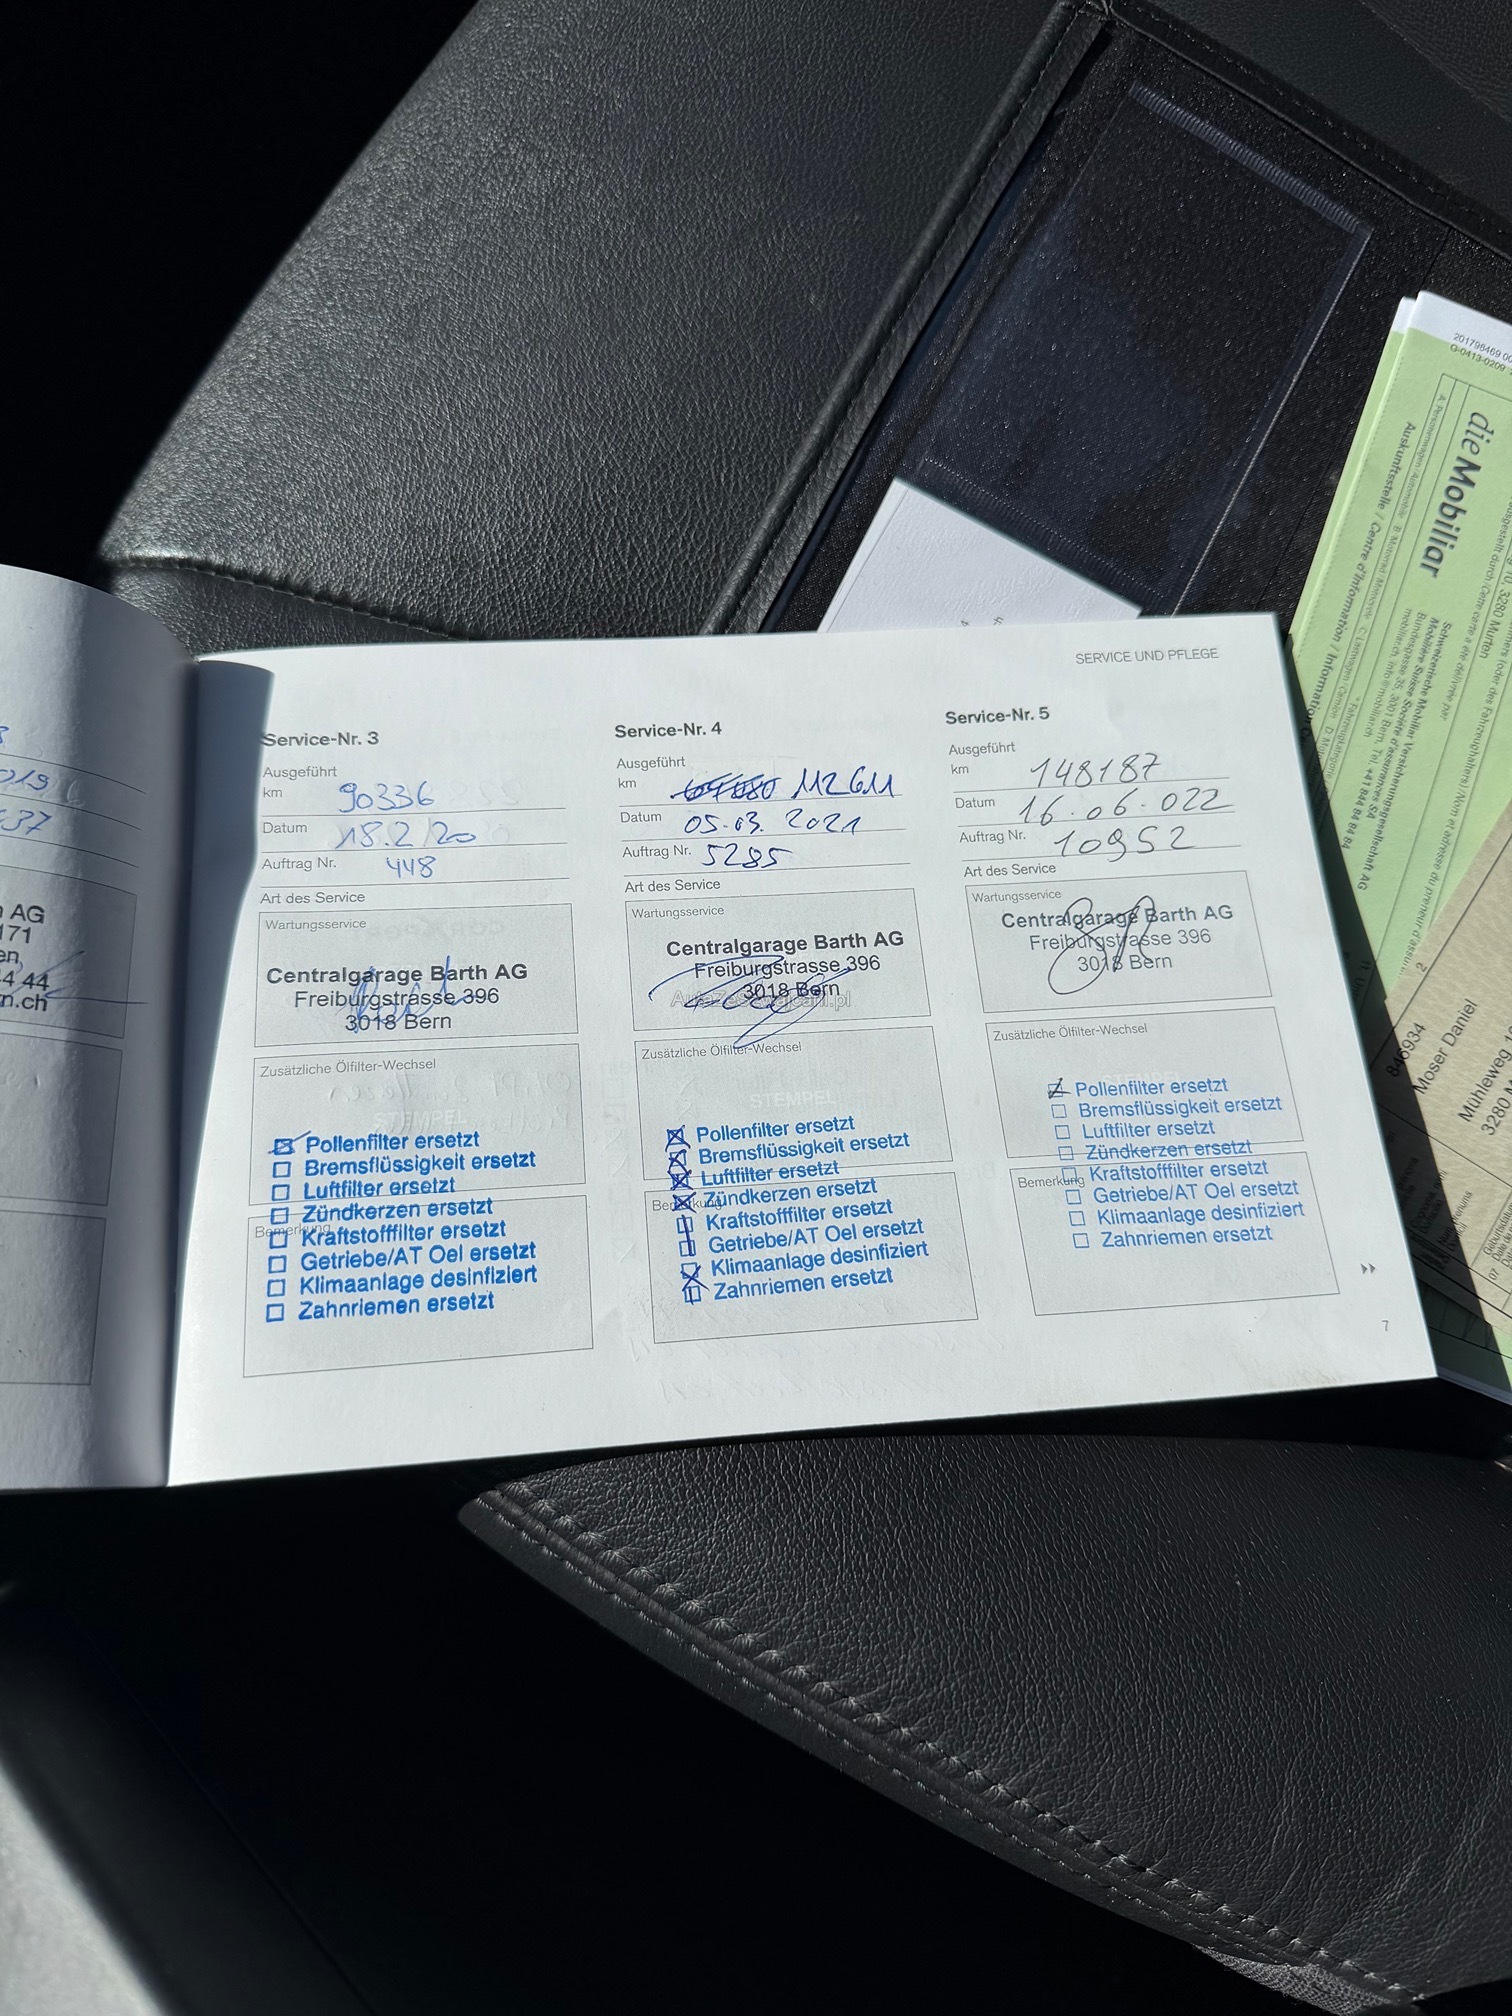 SERVICE UND PFLEGE
Service-Nr. 3
Ausgeführt
km 90336
Datum 18.2/20
Auftrag Nr. 448
Art des Service
Wartungsservice
Centralgarage Barth AG
Freiburgstrasse 396
3018 Bern
Zusätzliche Ölfilter-Wechsel
STEMPEL
Pollenfilter ersetzt
Bremsflüssigkeit ersetzt
Luftfilter ersetzt
Zündkerzen ersetzt
Bemerkung
Kraftstofffilter ersetzt
Getriebe/AT Oel ersetzt
Klimaanlage desinfiziert
Zahnriemen ersetzt
Service-Nr. 4
Ausgeführt
km 112611
Datum 05.03. 2021
Auftrag Nr. 5285
Art des Service
Wartungsservice
Centralgarage Barth AG
Freiburgstrasse 396
3018 Bern
Zusätzliche Ölfilter-Wechsel
STEMPEL
Pollenfilter ersetzt
Bremsflüssigkeit ersetzt
Luftfilter ersetzt
Bemerkung
Zündkerzen ersetzt
Kraftstofffilter ersetzt
Getriebe/AT Oel ersetzt
Klimaanlage desinfiziert
Zahnriemen ersetzt
Service-Nr. 5
Ausgeführt
km 148187
Datum 16.06.022
Auftrag Nr. 10952
Art des Service
Wartungsservice
Centralgarage Barth AG
Freiburgstrasse 396
3018 Bern
Zusätzliche Ölfilter-Wechsel
Pollenfilter ersetzt
Bremsflüssigkeit ersetzt
Luftfilter ersetzt
Zündkerzen ersetzt
Kraftstofffilter ersetzt
Bemerkung
Getriebe/AT Oel ersetzt
Klimaanlage desinfiziert
Zahnriemen ersetzt
7
AG
171
4 44
n.ch
37
die Mobiliar
Auskunftsstelle / Centre d'Information / Informazioni
Schweizerische Mobiliar Versicherungsgesellschaft AG
Mobilière Suisse Société d'assurances SA
3280 Murten
846934
Moser Daniel
Mühleweg
3280